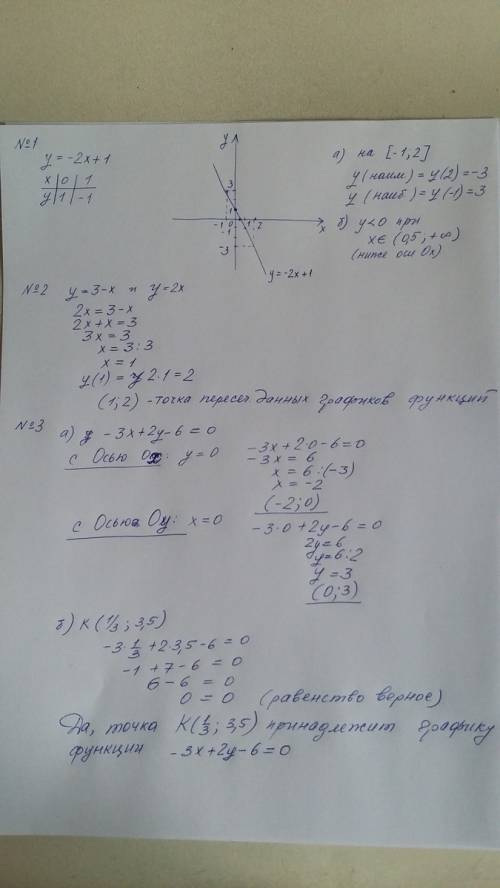 №1
y = -2x+1
x | 0 | 1
y | 1 | -1
y
3
1
-1 0 1 2
x
-1
-3
y=-2x+1
а) на [-1,2]
y(наим) = y(2) = -3
y(наиб) = y(-1) = 3
б) y<0 при
x∈(0,5; +∞)
(ниже оси Ox)
№2 y=3-x и y=2x
2x=3-x
2x+x=3
3x=3
x=3:3
x=1
y(1) = 2·1=2
(1;2) - точка пересеч данных графиков функций
№3
а) -3x+2y-6=0
с Осью Ox: y=0
-3x+2·0-6=0
-3x = 6
x = 6:(-3)
x = -2
(-2;0)
с Осью Oy: x=0
-3·0+2y-6=0
2y=6
y=6:2
y=3
(0;3)
б) K(1/3; 3,5)
-3·1/3+2·3,5-6=0
-1+7-6=0
6-6=0
0=0 (равенство верное)
Да, точка K(1/3; 3,5) принадлежит графику
функции -3x+2y-6=0